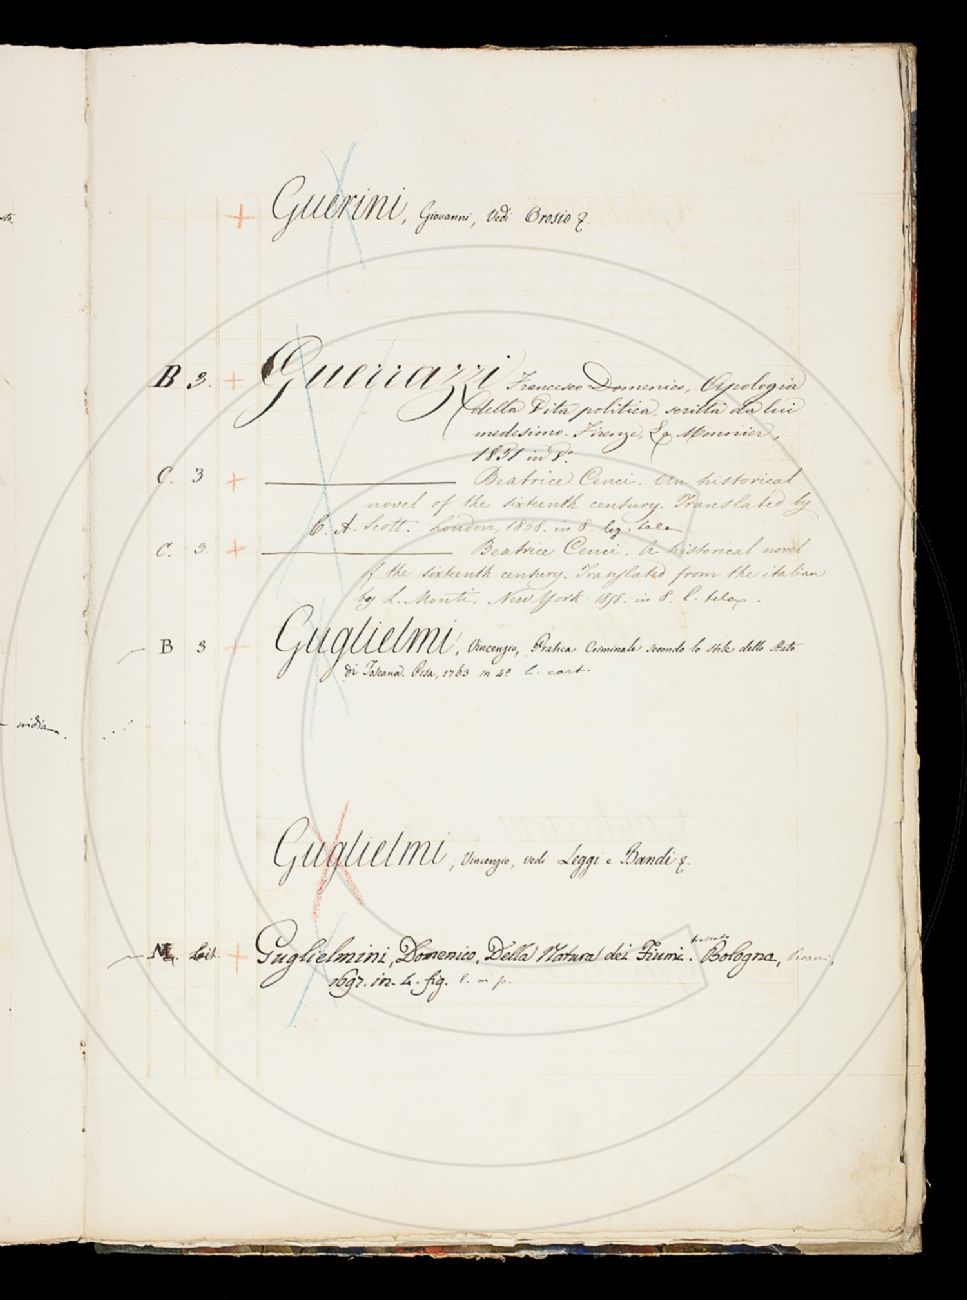 + Guerini, Giovanni, Vedi Orosio &.
B 3. + Guerrazzi Francesco Domenico, Apologia
della Vita politica, scritta da lui
medesimo. Firenze, Le Monnier,
1851 in 8°.
C. 3 + ——— Beatrice Cenci. An historical
novel of the sixteenth century. Translated by
C. A. Scott. London, 1858. in 8. leg. tela
C. 3. + ——— Beatrice Cenci. A historical novel
of the sixteenth century. Translated from the italian
by L. Monti. New York 1858. in 8. l. tela.
B 3 + Guglielmi, Vincenzio, Pratica Criminale secondo lo stile dello Stato
di Toscana. Pisa, 1763 in 4° l. cart.
Guglielmi, Vincenzio, vedi Leggi e Bandi &.
M. + Guglielmini, Domenico, Della Natura dei Fiumi. Bologna,
1697. in. 4. fig. l. m p.